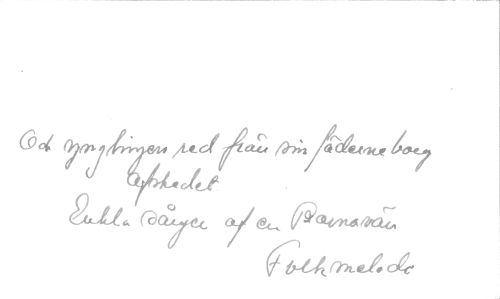 Och ynglingen red från sin fäderneborg
Afskedet
Enkla sånger af en Barnavän
Folkmelodi